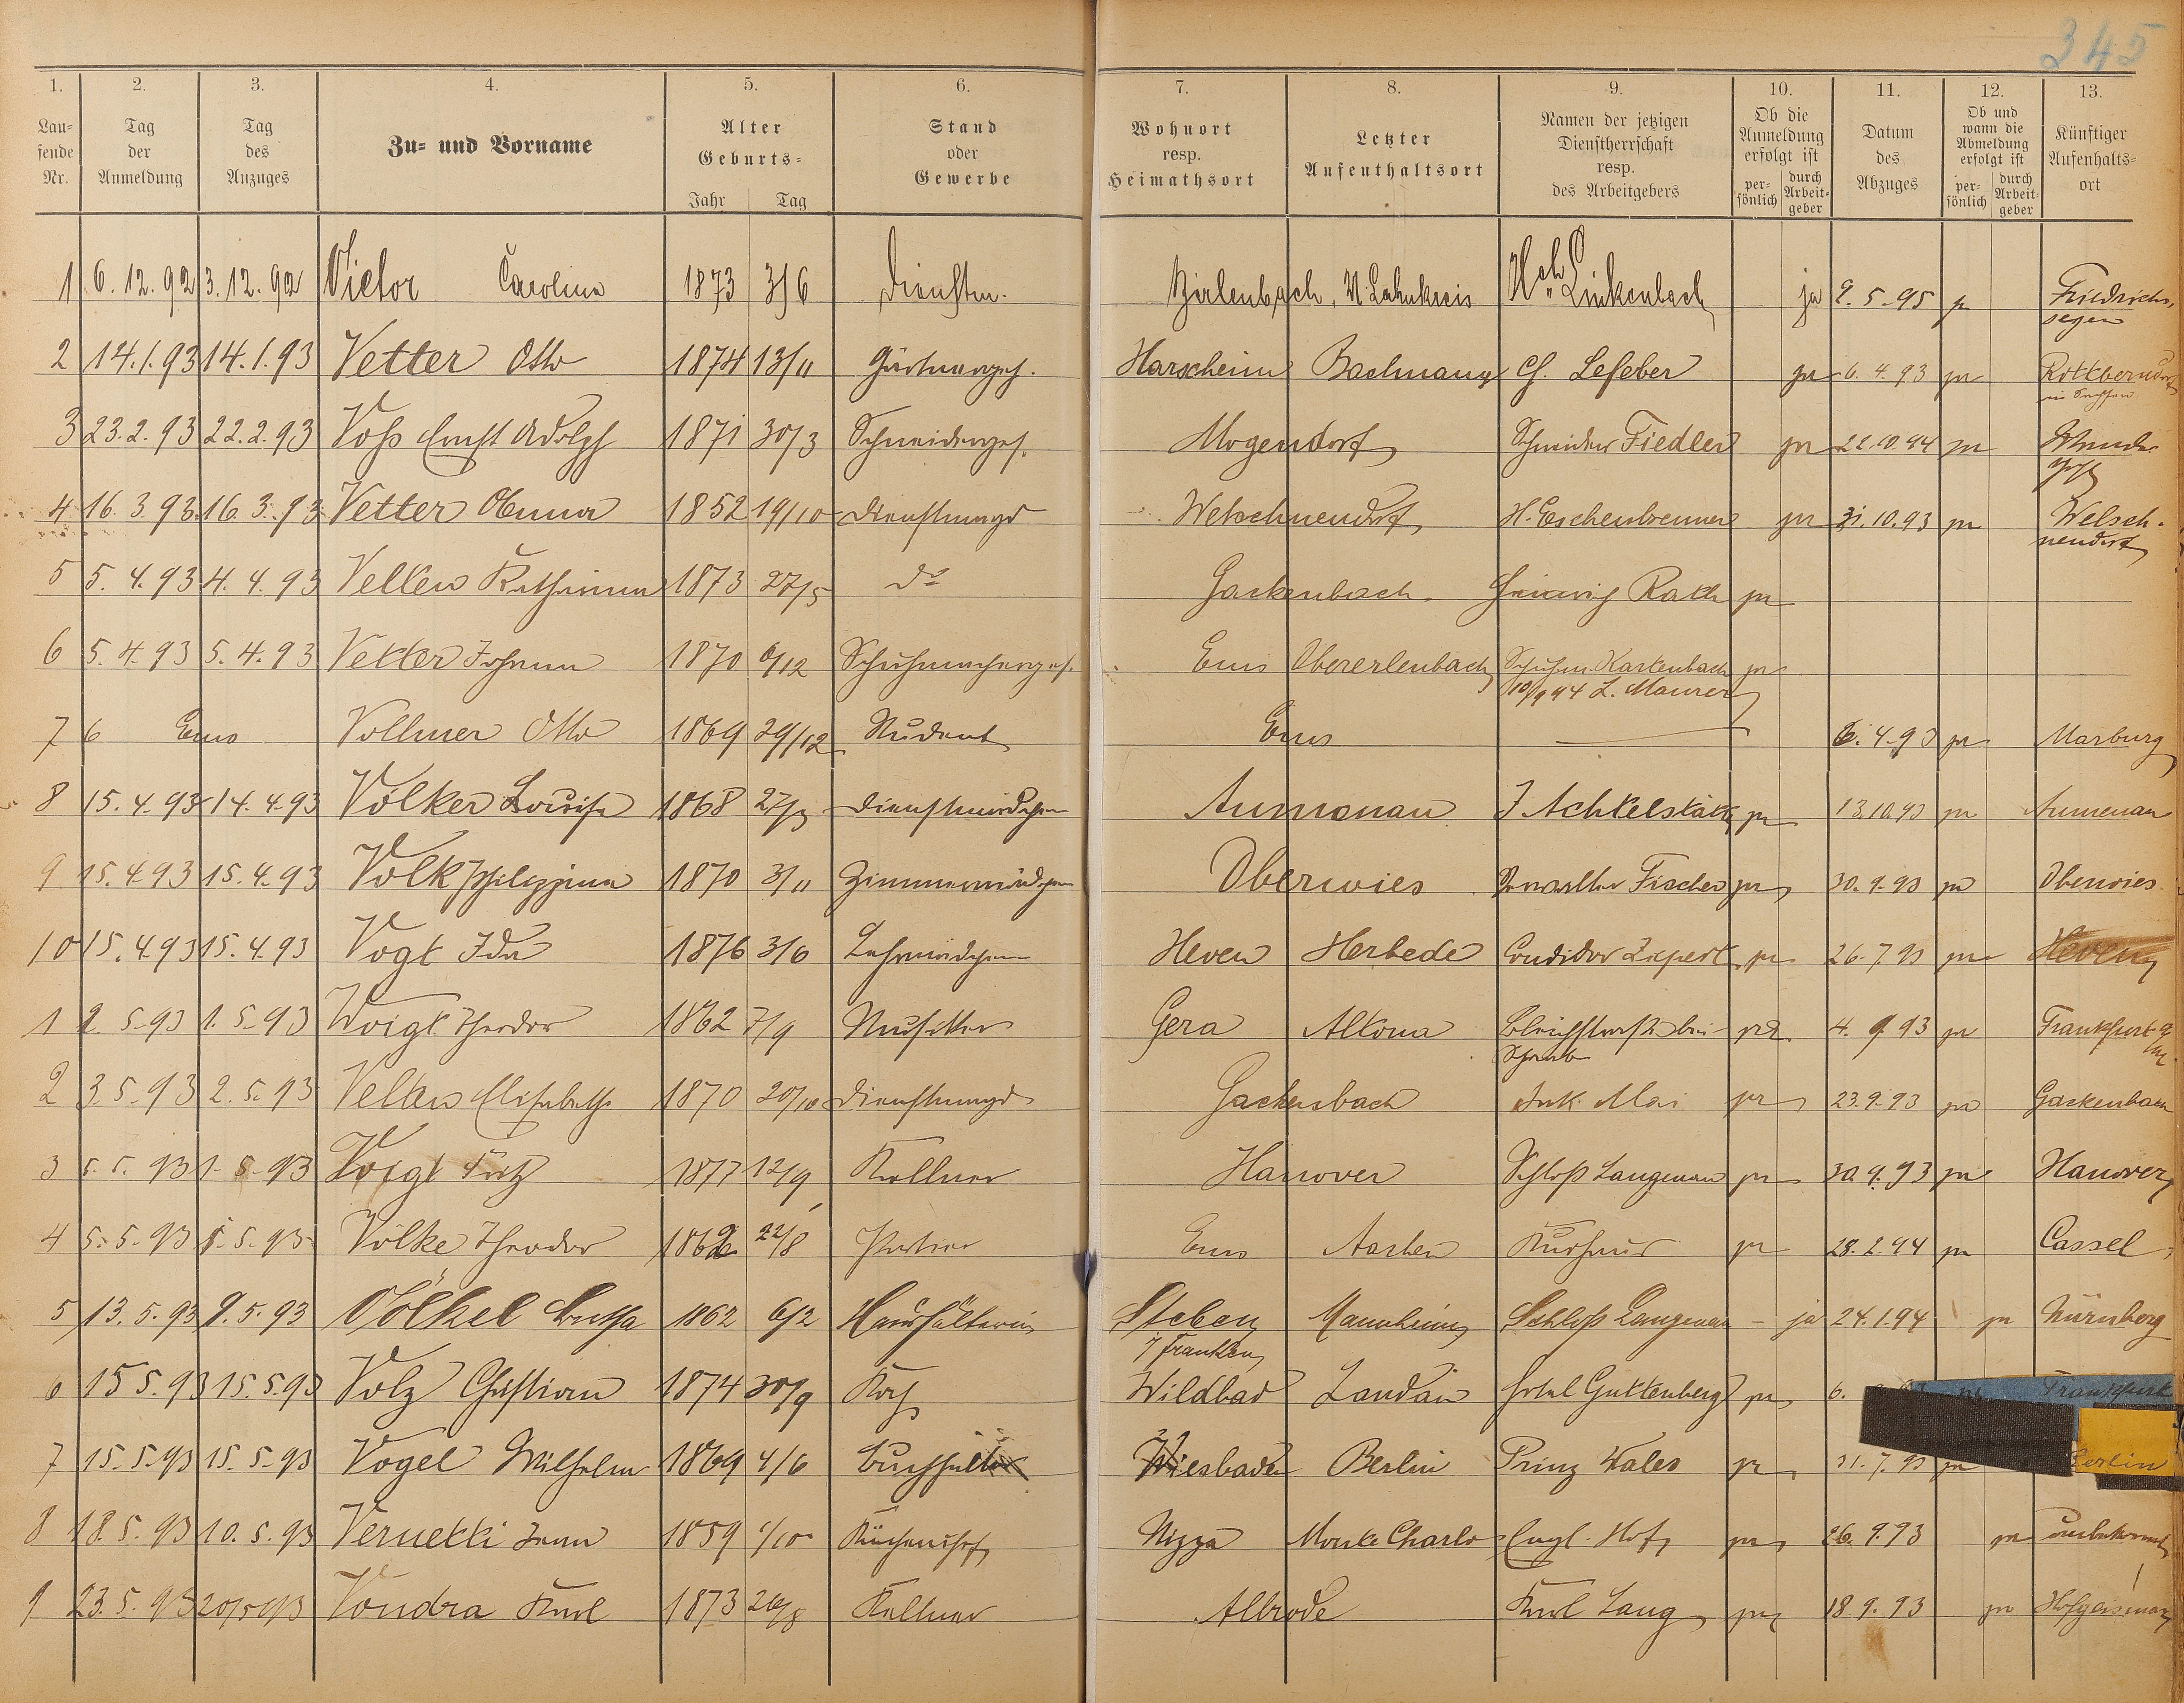 345
1. 2. 3. 4. 5. 6. 7. 8. 9. 10. 11. 12. 13.
Laufende Nr.
Tag der Anmeldung
Tag des Anzuges
Zu- und Vorname
Alter
Geburts-
Jahr Tag
Stand oder Gewerbe
Wohnort resp. Heimathsort
Letzter Aufenthaltsort
Namen der jetzigen Dienstherrschaft resp. des Arbeitgebers
Ob die Anmeldung erfolgt ist
persönlich durch Arbeitgeber
Datum des Abzuges
Ob und wann die Abmeldung erfolgt ist
persönlich durch Arbeitgeber
Künftiger Aufenthaltsort
1 6.12.92 3.12.92 Victor Caroline 1873 3/6 Dienstm. Birlenbach, U. Lahnkreis Hch Linkenbach ja 2.5.95 ja Friedrichs
segen
2 14.1.93 14.1.93 Vetter Otto 1874 13/11 Gärtnergeh. Harscheim C. Lefeber ja 6.4.93 ja
3 23.2.93 22.2.93 Voss Ernst Adolph 1871 30/3 Schneiderges. Mogendorf Schneider Fiedler ja 22.10.94 ja
4 16.3.93 16.3.93 Vetter Anna 1852 19/10 Dienstmagd Welschneudorf H. Eschenbrenner ja 31.10.93 ja Welsch-
neudorf
5 5.4.93 4.4.93 Velten Katharina 1873 27/5 do Gackenbach Heinrich Rath ja
6 5.4.93 5.4.93 Vetter Johann 1870 6/12 Schuhmacherges. Ems Obererlenbach Schuhm. Kartenbach ja
10/9 94 L. Maurer
7 6 Ems Vollmer Otto 1869 29/12 Student Ems 6.4.93 ja Marburg
8 15.4.93 14.4.93 Völker Louise 1868 27/3 Dienstmädchen Aumenau J Achtelstätt ja 13.10.93 ja Aumenau
9 15.4.93 15.4.93 Volk Philippina 1870 3/11 Zimmermädchen Oberwies Verwalter Fischer ja 30.9.93 ja Oberwies
10 15.4.93 15.4.93 Vogt Ida 1876 3/6 Lehrmädchen Heven Herbede Conditor Liepert ja 26.7.93 ja Heven
1 2.5.93 1.5.93 Voigt Theodor 1862 7/9 Musiker Gera Altona Bleichstraße bei ja 4.9.93 ja Frankfurt a/M
2 3.5.93 2.5.93 Velten Elisabeth 1870 20/10 Dienstmagd Gackenbach Ant. Mai ja 23.9.93 ja Gackenbach
3 5.5.93 1.5.93 Voigt Fritz 1877 12/9 Kellner Hanover Schloß Langenau ja 30.9.93 ja Hanover
4 5.5.93 5.5.93 Völke Theodor 1862 22/8 Portier Ems Aachen Kurhaus ja 28.2.94 ja Cassel
5 13.5.93 9.5.93 Völkel Bertha 1862 6/2 Haushälterin Steben Mannheim Schloß Langenau - ja 24.1.94 ja Nürnberg
/ Franken
6 15.5.93 15.5.93 Volz Christian 1874 30/9 Koch Wildbad Landau Hotel Guttenberg ja 6. Frankfurt
7 15.5.93 15.5.93 Vogel Wilhelm 1869 4/6 Buchhalter Wiesbaden Berlin Prinz Wales ja 31.7.93 ja Berlin
8 18.5.93 10.5.93 Vernetti Jean 1859 1/10 Küchenchef Nizza Monte Charlo Engl. Hof ja 26.9.93 ja unbekannt
9 23.5.93 20/5 93 Vondra Karl 1873 26/8 Kellner Albrode Karl Lang ja 18.9.93 ja Hofgeismar